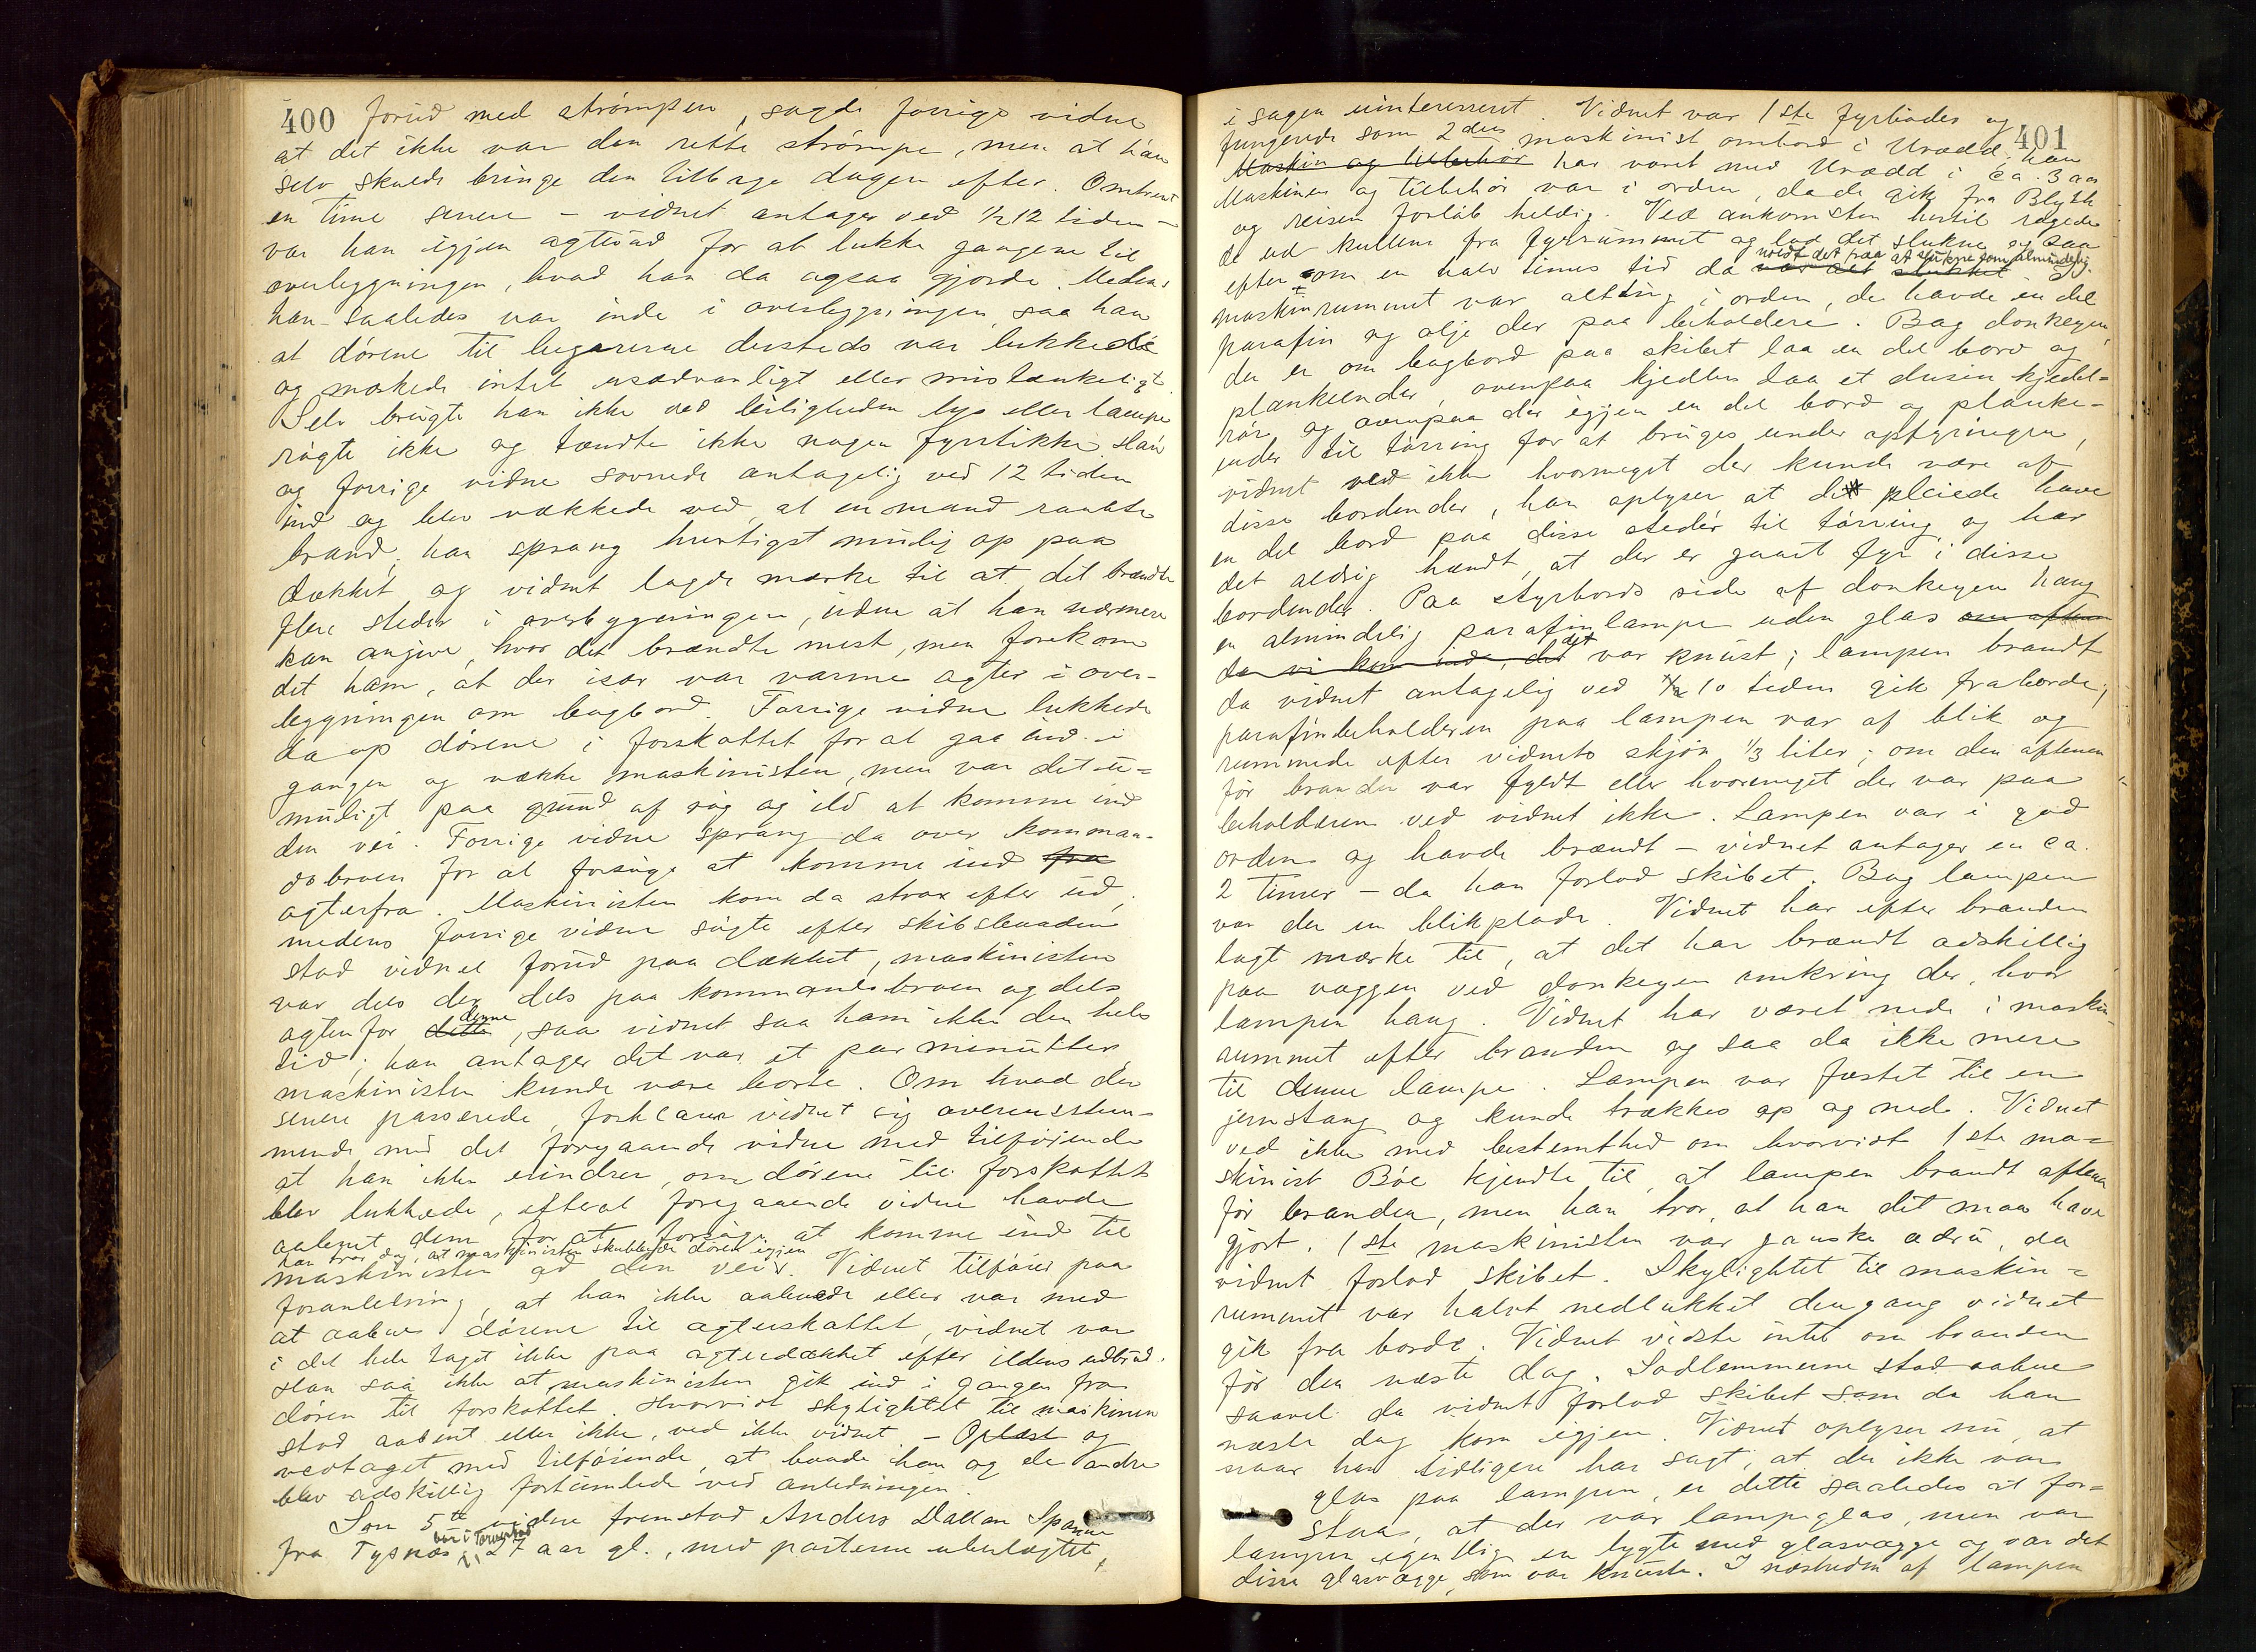 400 forud med strømpen, sagde forrige vidne
at det ikke var den rette strømpe, men at han
selv skulde bringe den tilbage dagen efter. Omtrent
en time senere – vidnet antager ved 1/2 12 tiden –
var han igjen agterud for at lukke gangene til
overbygningen, hvad han da ogsaa gjorde. Medens
han saaledes var inde i overbygningen, saa han
at dørene til lugarerne dersteds var lukkede
og mærkede intet usædvanligt eller mistænkeligt.
Selv brugte han ikke ved leiligheden lys eller lampe
røgte ikke og tændte ikke nogen fyrstikke. Han
og forrige vidne sovnede antagelig ved 12 tiden
ind og blev vækkede ved at en mand raabte
brand; han sprang hurtigst mulig op paa
dækket og vidnet lagde mærke til at det brændte
flere steder i overbygningen, uden at han nærmere
kan angive, hvor det brændte mest, men forekom
det ham, at der især var varme agter i over-
bygningen om bagbord. Forrige vidne lukkede
da op dørene i forskottet for at gaa ind i
gangen og vække maskinisten, men var det u=
muligt paa grund af røg og ild at komme ind
den vei. Forrige vidne sprang da over komman-
dobroen for at forsøge at komme ind fra
agterfra. Maskinisten kom da strax efter ud,
medens forrige vidne søgte efter skibsbaaden
stod vidnet forud paa dækket, maskinisten
var dels der dels paa kommandobroen og dels
agtenfor dette denne, saa vidnet saa ham ikke den hele
tid; han antager det var et par minutter
maskinisten kunde være borte. Om hvad der
senere passerede, forklarer vidnet sig overensstem-
mende med det foregaaende vidne med tilføiende
at han ikke erindrer, om dørene til forskottet
blev lukkede, efterat foregaaende vidne havde
aabnet dem for at forsøge at komme ind til
han tror dog, at maskinisten skubbede døren igjen
maskinisten ad den vei. Vidnet tilføier paa
foranledning, at han ikke aabnede eller var med
at aabne dørene til agterskottet, vidnet var
i det hele taget ikke paa agterdækket efter ildens udbrud.
Han saa ikke at maskinisten gik ind i gangen fra
døren til forskottet. Hvorvidt skylightet til maskinen
stod aabent eller ikke, ved ikke vidnet. – Oplæst og
vedtaget med tilføiende, at baade han og de andre
blev adskillig fortumlede ved anledningen.
Som 5te vidne fremstod Anders Dallan
fra Tysnæs, 27 aar gl., med parterne ubeslægtet,
401
i sagen uinteresseret. Vidnet var 1ste fyrbøder og
fungerede som 2den maskinist ombord i Urædd; han
Maskin og tilbehør har været med Urædd i ca. 3 aar
Maskinen og tilbehør var i orden, da de gik fra Blyth
og reisen forløb heldig. Ved ankomsten hertil ragede
de ud kullene fra fyrrummet og lod det slukne og saa
efter om en halv times tid da var det slukket holdt det paa at slukne som almindelig. I
maskinrummet var alting i orden, de havde en del
parafin og olje der paa beholdere. Bag donkeyen,
der er om bagbord paa skibet laa en del bord og
plankeender, ovenpaa kjedlen laa et dusin kjedel=
rør og ovenpaa der igjen en del bord og planke-
ender til tørring for at bruges under opfyringen,
vidnet ved ikke hvormeget der kunde være af
disse bordender, han oplyser at de pleiede have
en del bord paa disse steder til tørring og har
det aldrig hændt, at der er gaaet fyr i disse
bordender. Paa styrbords side af donkeyen hang
en almindelig parafinlampe uden glas om aftenen
da vi kom ind, det det var knust; lampen brændt
da vidnet antagelig ved 1/2 10 tiden gik fraborde;
parafinbeholderen paa lampen var af blik og
rummede efter vidnets skjøn 1/3 liter; om den aftenen
før branden var fyldt eller hvormeget der var paa
beholderen ved vidnet ikke. Lampen var i god
orden og havde brændt – vidnet antager en ca.
2 timer – da han forlod skibet. Bag lampen
var der en blikplade. Vidnet har efter branden
lagt mærke til, at det har brændt adskillig
paa væggen ved donkeyen omkring der, hvor
lampen hang. Vidnet har været nede i maskin-
rummet efter branden og saa da ikke mere
til denne lampe. Lampen var fæstet til en
jernstang og kunde trækkes op og ned. Vidnet
ved ikke med bestemthed om hvorvidt 1ste ma=
skinist Bøe kjendte til, at lampen brændt aftenen
før branden, men han tror, at han det maa have
gjort. 1ste maskinisten var ganske ædru, da
vidnet forlod skibet. Skylightet til maskin=
rummet var halvt nedlukket dengang vidnet
gik fra borde. Vidnet vidste intet om branden
før den næste dag. Lodlemmerne stod aabne
saavel da vidnet forlod skibet som da han
næste dag kom igjen. Vidnet oplyser nu, at
naar han tidligere har sagt, at der ikke var
glas paa lampen, er dette saaledes at for=
staa, at der var lampeglas, men var
lampen egentlig en lygte med glasvægge og var det
disse glasvægge, som var knuste. I nærheden af lampen